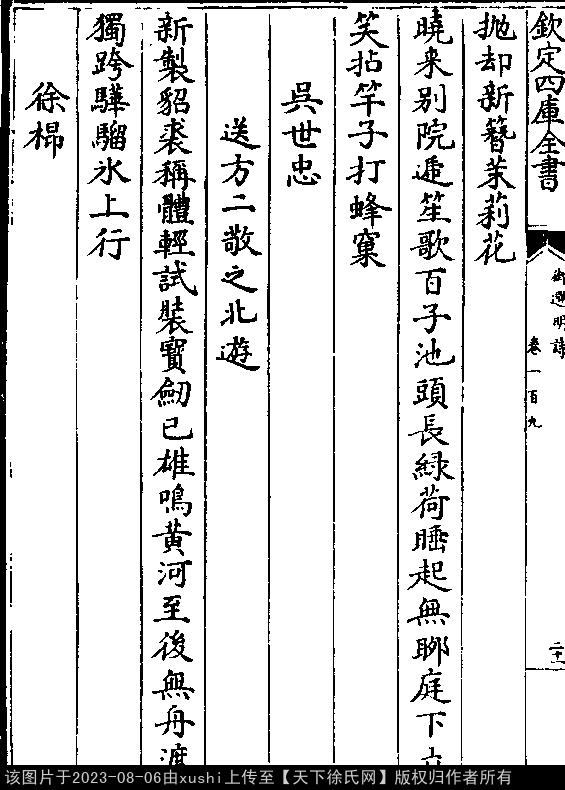 欽定四庫全書
御選明詩
卷一百九
二十一
拋却新簪茉莉花
曉来别院遞笙歌百子池頭長緑荷睡起無聊庭下
笑拈竿子打蜂窠
吳世忠
送方二敬之北遊
新製貂裘稱體輕試裝寶劒已雄鳴黄河至後無舟渡
獨跨驊騮氷上行
徐
该图片于2023-08-06由xushi上传至【天下徐氏网】版权归作者所有